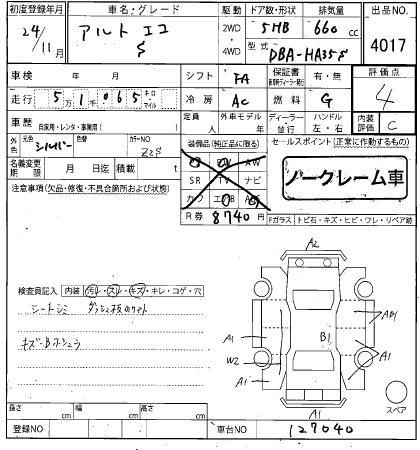 初度登録年月 車名・グレード 駆動 ドア数・形状 排気量 出品NO.
24/11月 アルト エコ S 2WD 5HB 660 cc 4017
4WD 型式 DBA-HA35S
車検 年 月 シフト FA 保証書 有・無 評価点
走行 5万1千065 キロ マイル 冷房 AC 燃料 G 4
車歴 自家用・レンタ・事業用( ) 定員 人 外車モデル 年 ディーラー 並行 ハンドル 左・右 内装評価 C
外色 元色 シルバー 色替 カラーNO Z2S 装備品(純正品に限る) セールスポイント(正常に作動するもの)
名義変更期限 月 日迄 積載 t SR TV ナビ ノークレーム車
注意事項(欠品・修復・不具合箇所および状態) カワ エアB
R券 8740円 Fガラス トビ石・キズ・ヒビ・ワレ・リペア跡
A2
検査員記入 内装 汚レ・スレ・キズ・キレ・コゲ・穴
シートシミ
キズ・B
A1 B1 AB1
W2 A1
A1 A1
スペア
長さ cm 幅 cm 高さ cm
登録NO 車台NO 127040